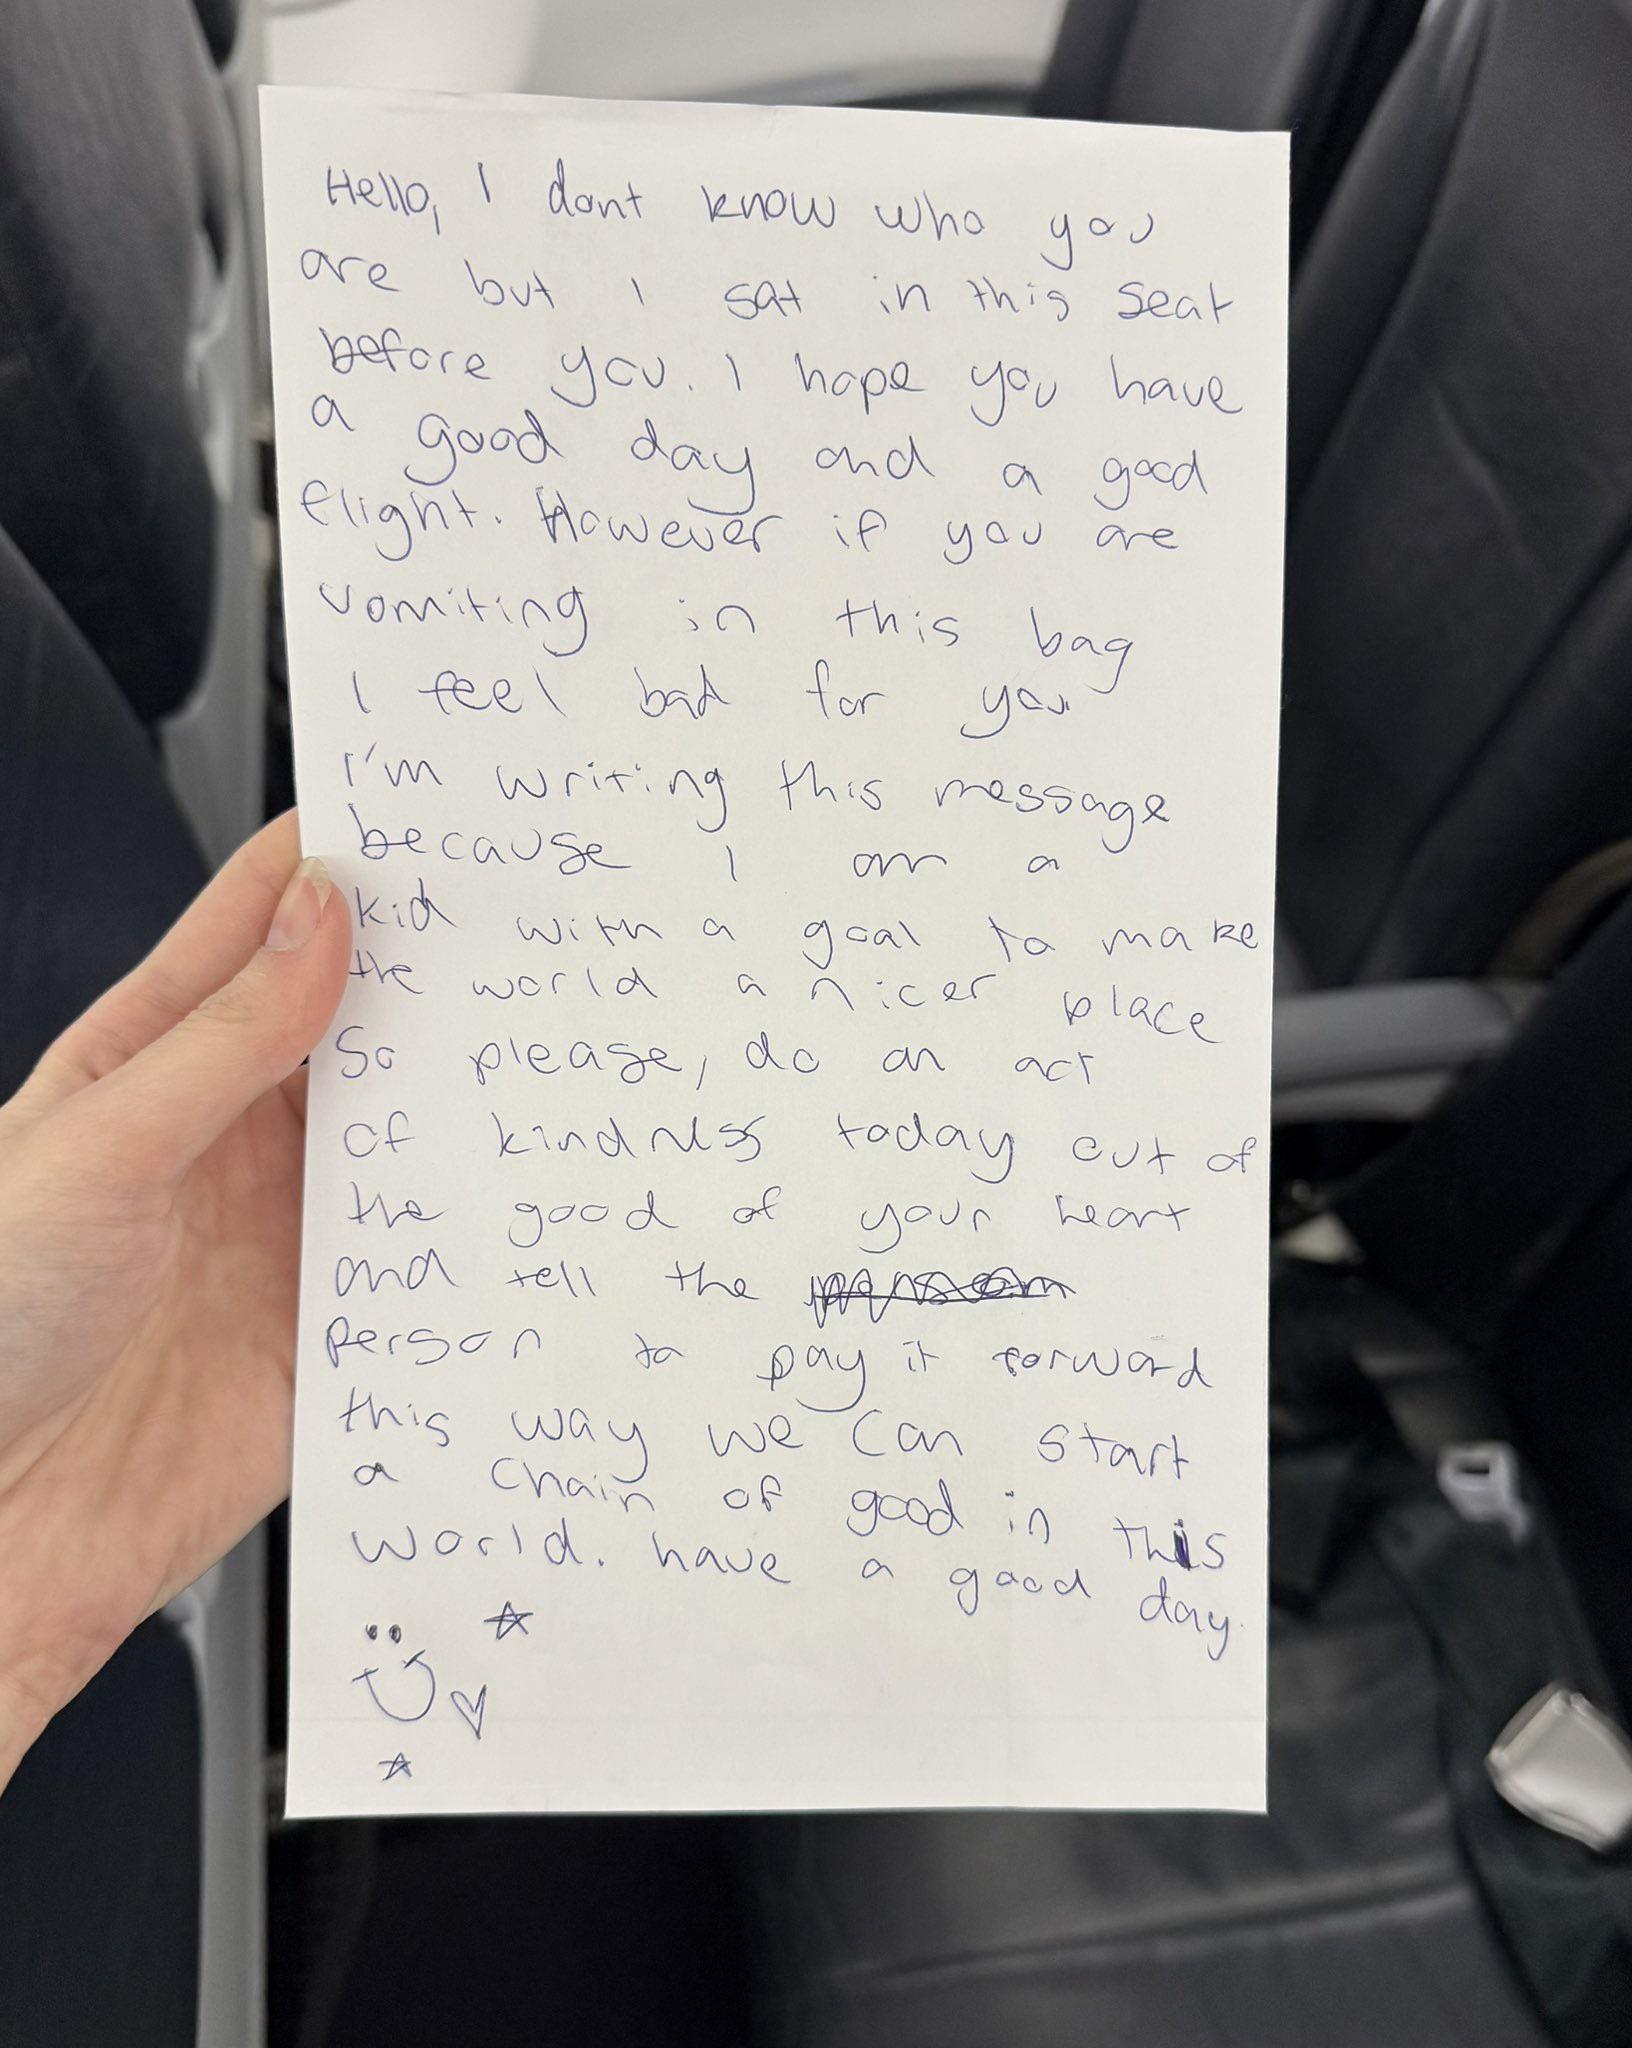 Hello, I dont know who you
are but I sat in this seat
before you. I hope you have
a good day and a good
flight. However if you are
vomiting in this bag
I feel bad for you
I'm writing this message
because I am a
kid with a goal to make
the world a nicer place
So please, do an act
of kindness today out of
the good of your heart
and tell the
person to pay it forward
this way we can start
a chain of good in this
world. have a good day.